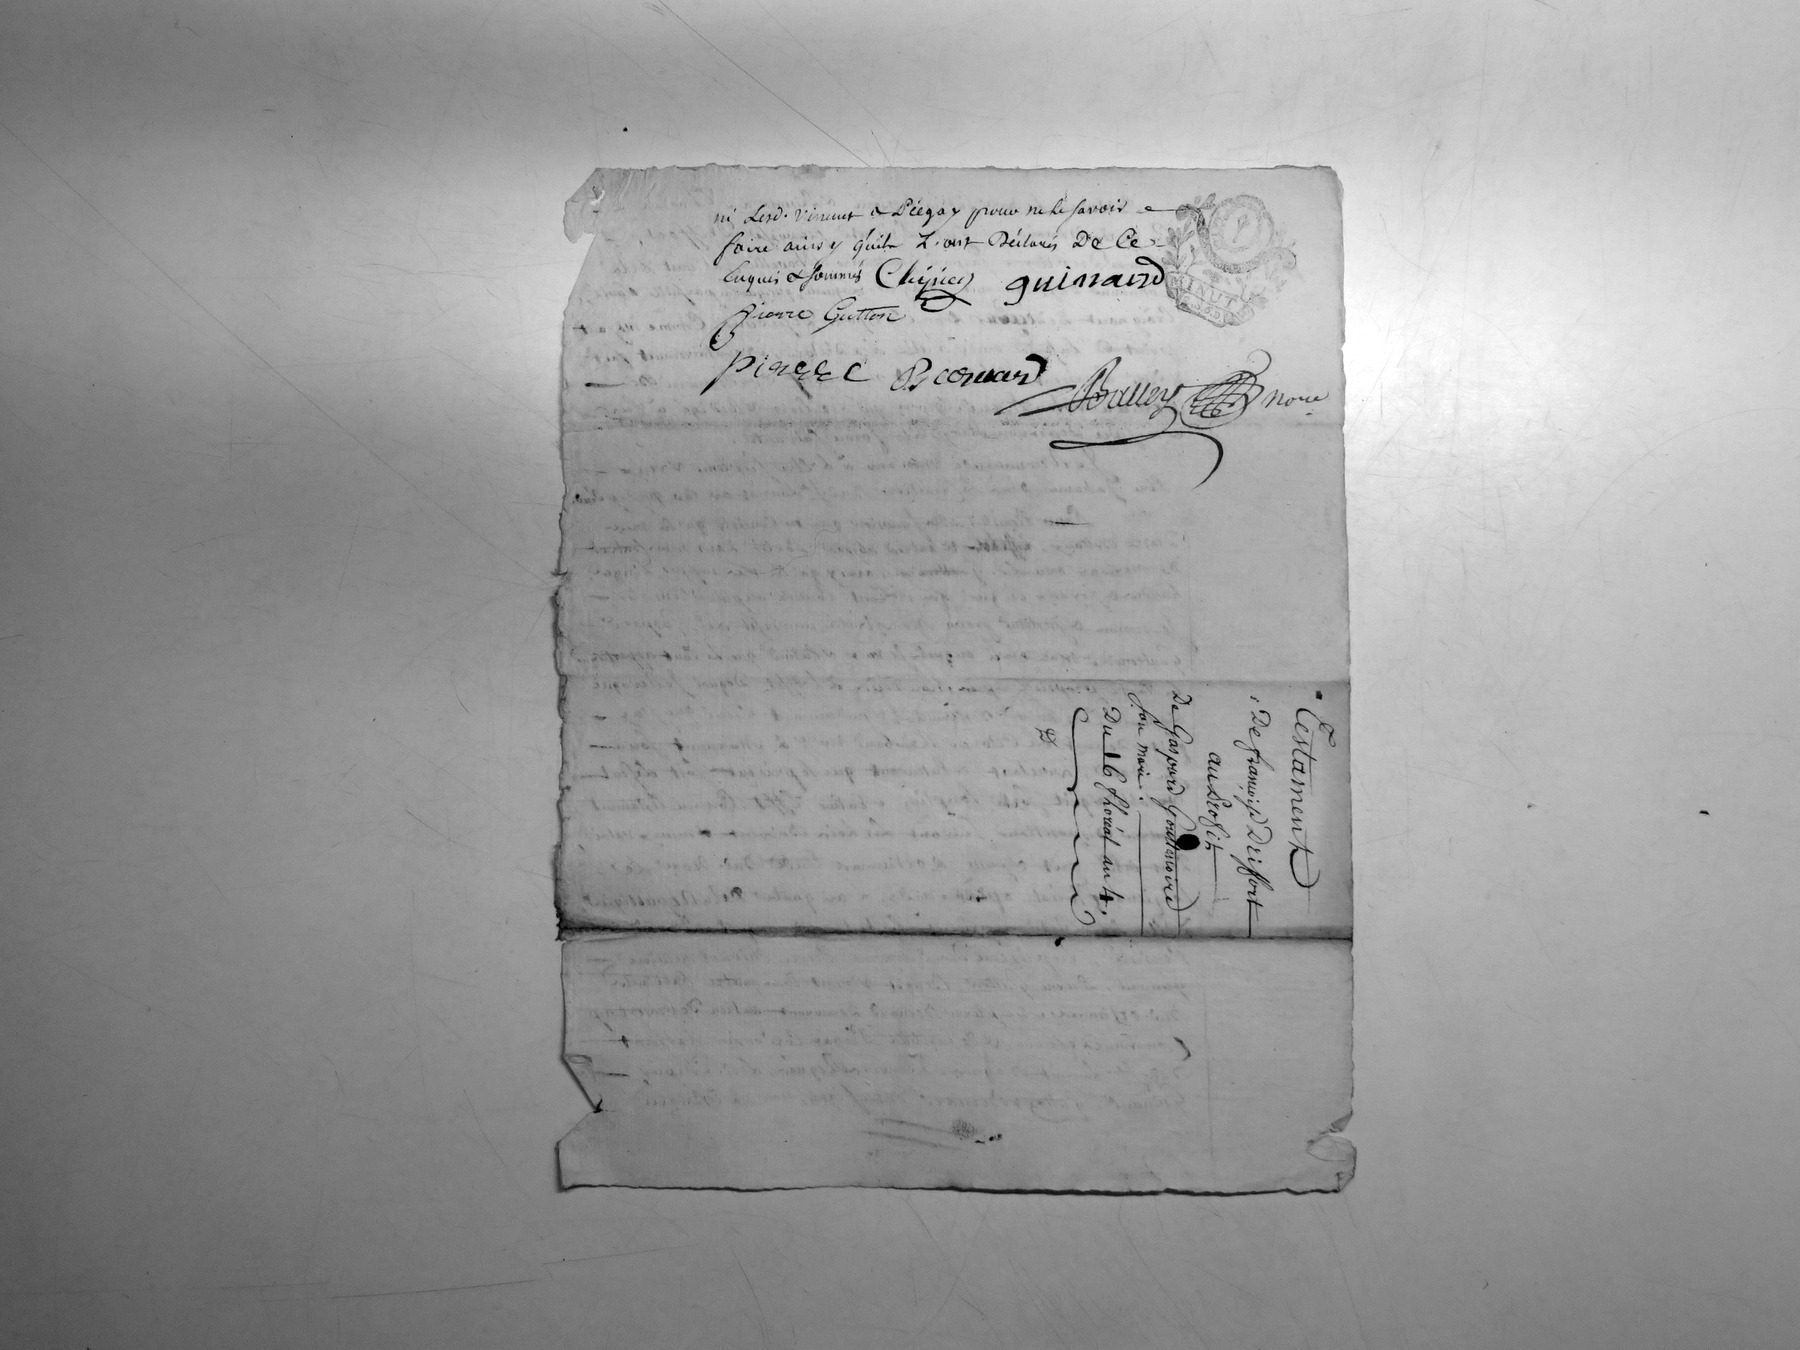 ni Lesd. vincent & Piegay pour ne le savoir
faire ainsy quils L'ont Déclarés De Ce
Enquis & Sommés guinand
pierre Gutton
PIERRE Bernard
Balley nore
MINUT
Testament
De françoise Driffort
au Profit
De Gaspard Gouttenoire
son mari
Du 16 floréal an 4.